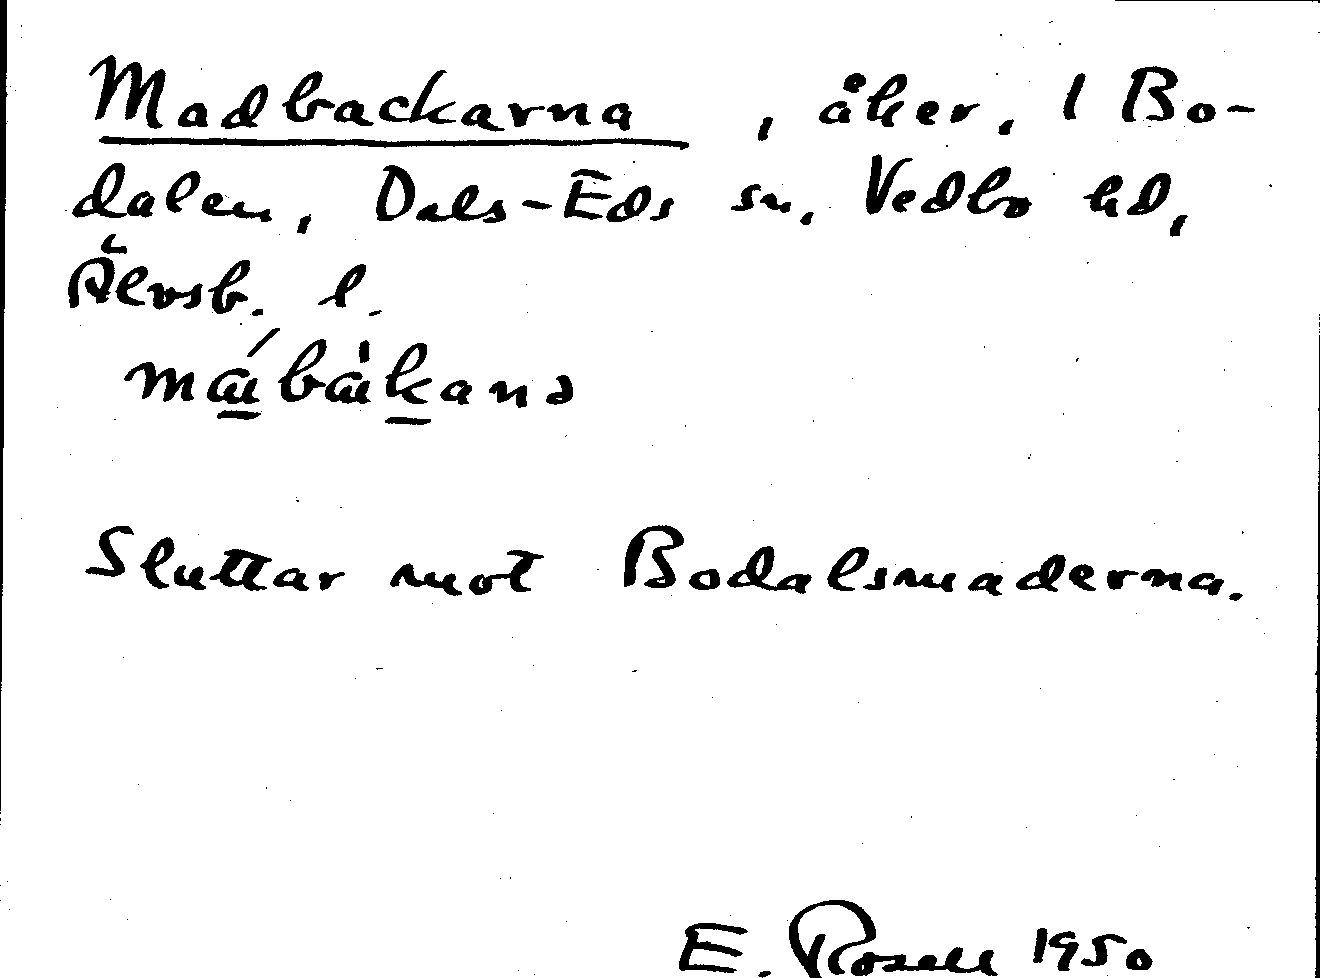 Madbackarna, åker, 1 Bo-
dalen, Dals-Eds sn, Vedbo hd,
Älvsb. l.
Sluttar mot Bodalsmaderna.
E. Rosell 1950